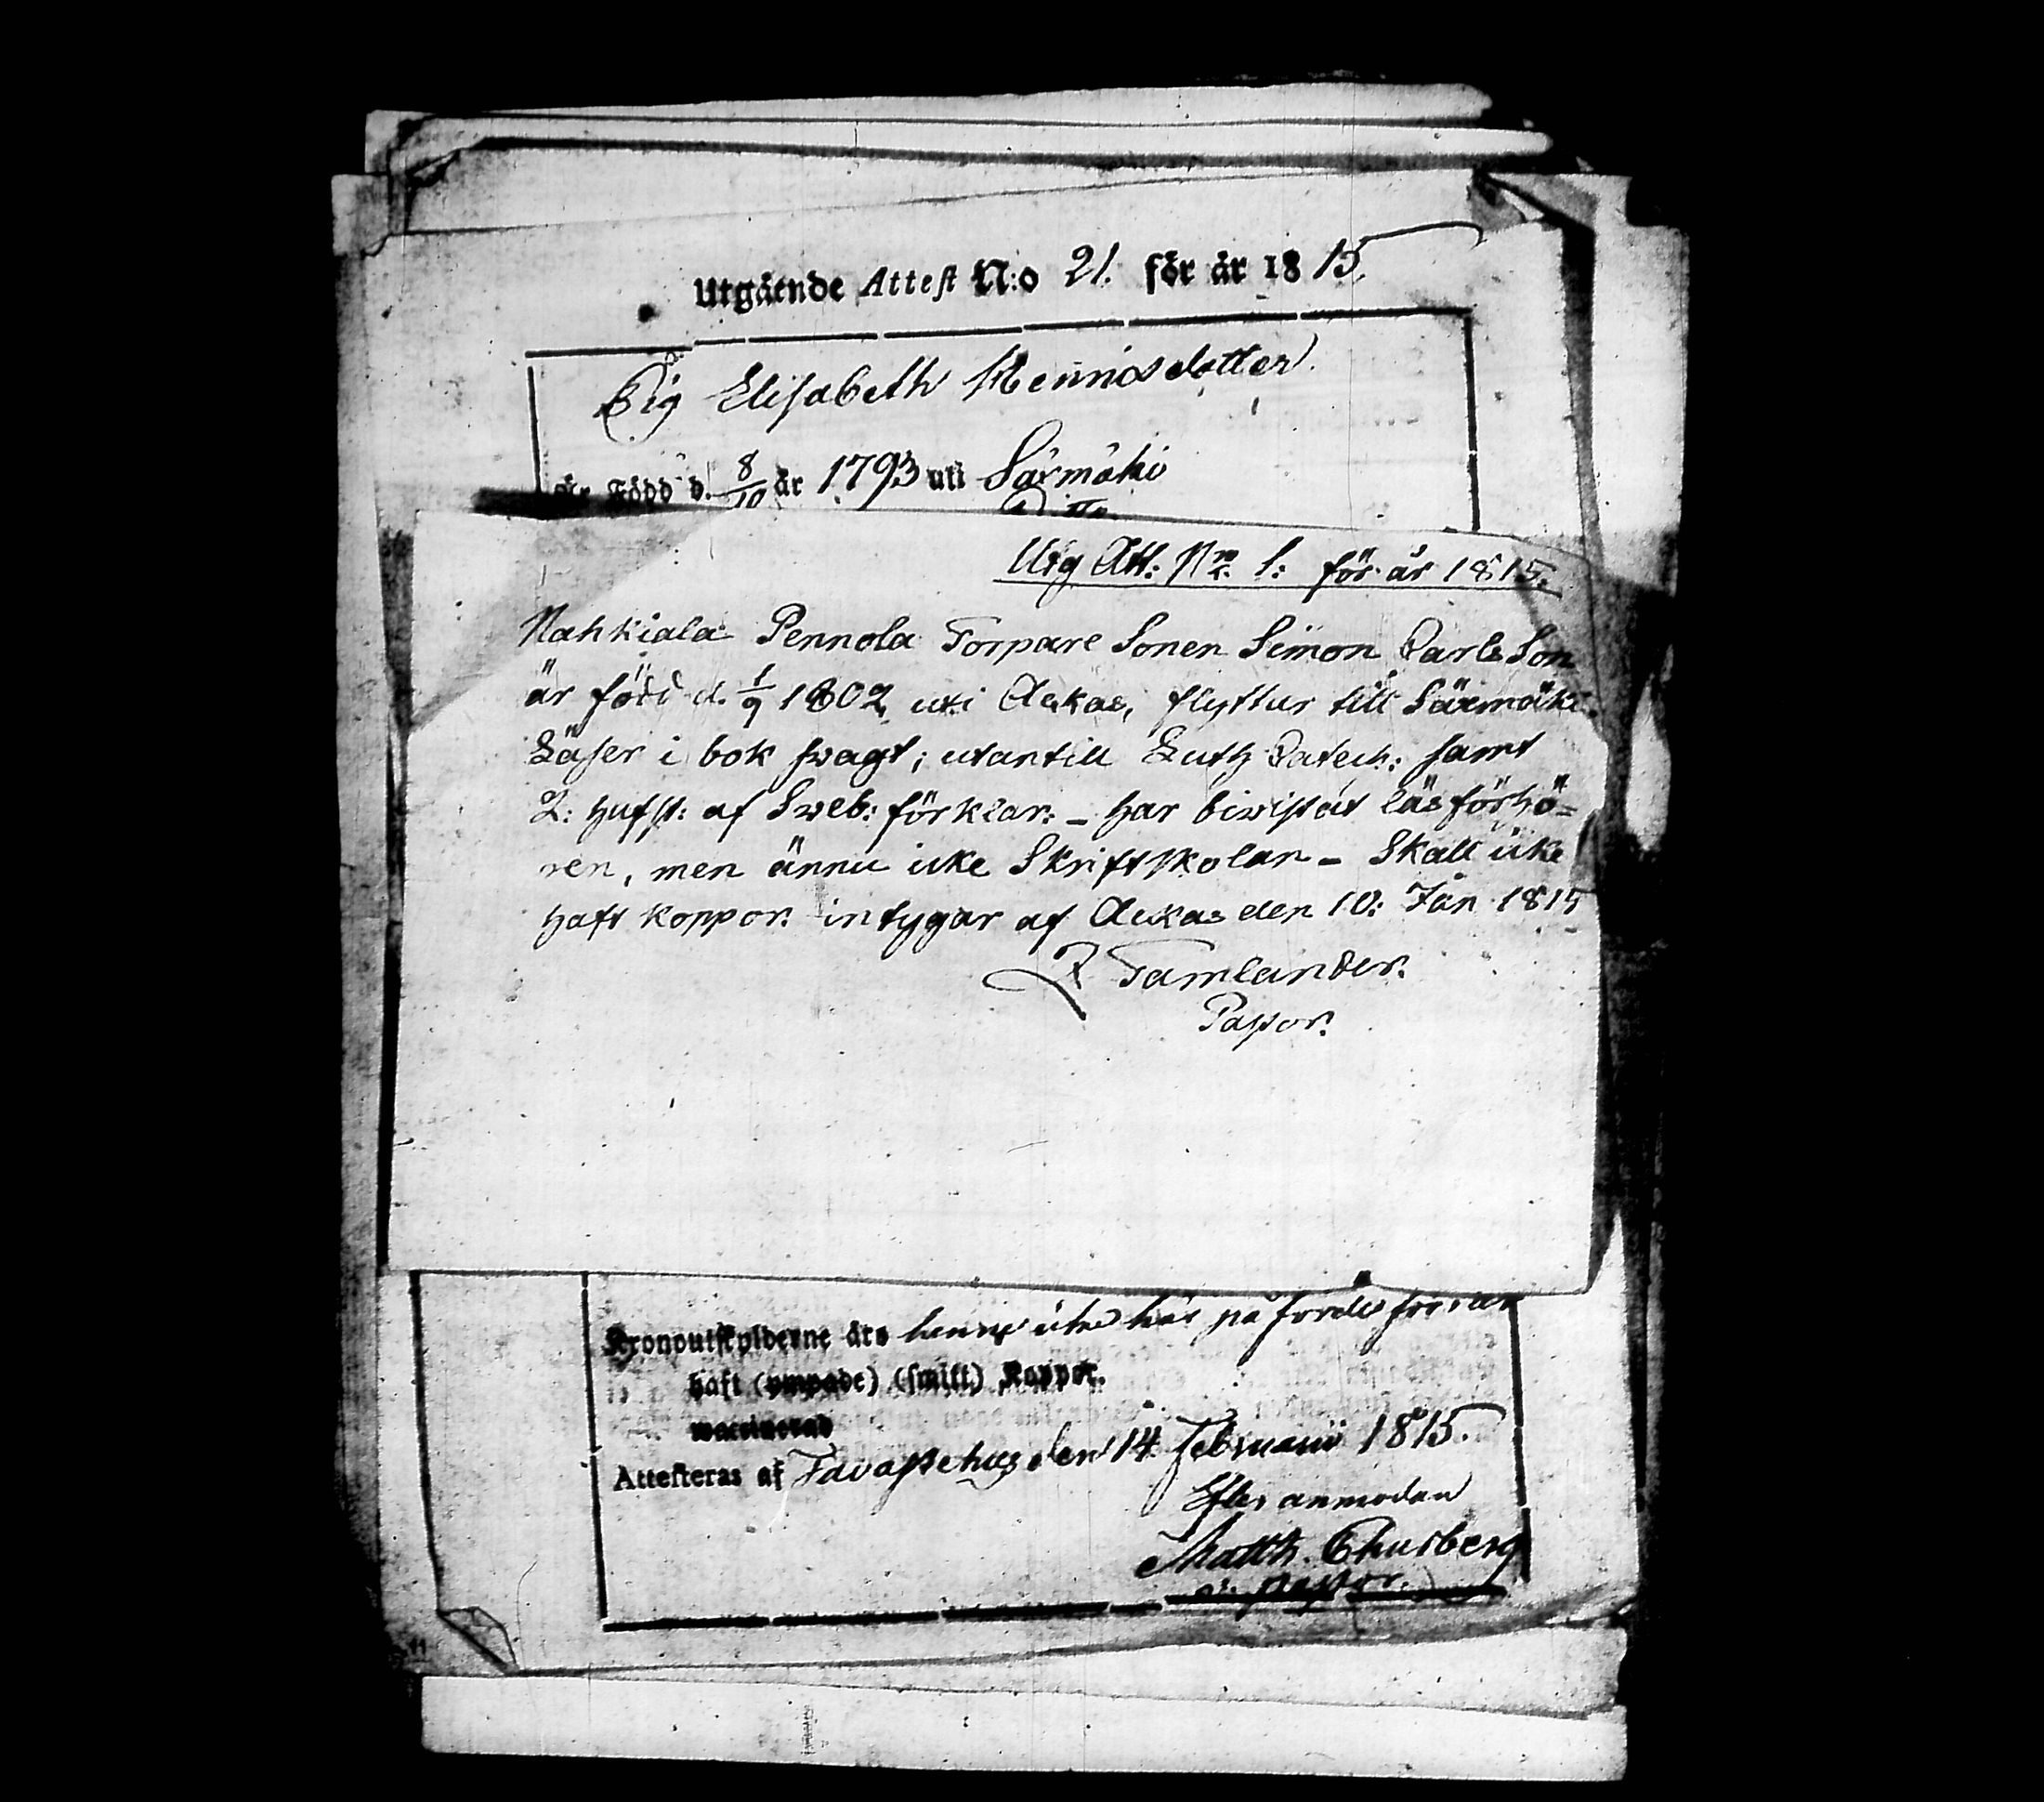 Utgående Attest N:o 21. för år 1815.
Pig Elisabeth Hennisdotter.
är Född d. 8/10 år 1793 uti Särmäki
Utg Att: Nro 1: för år 1815.
Nahkiala Pennola Torpare Sonen Simon Carls Son
är född d. 1/9 1802 uti Ackas, flyttar till Särmäki.
Läser i bok swagt; utantill Luth Catech: samt
2: hufst: af Sweb: förklar: – har biwistat läsförhö=
ren, men ännu icke Skriftskolan – Skall icke
haft koppor. intygar af Ackas den 10: Jan 1815
Tamlander.
Pastor.
Kronoutskylderne äro henne här på
haft (ympade) (smitt) Koppor.
waccinerad
Attesteras af Tavastehus den 14 Februarii 1815.
Efter anmodan
Matth. Churberg
Pastor.